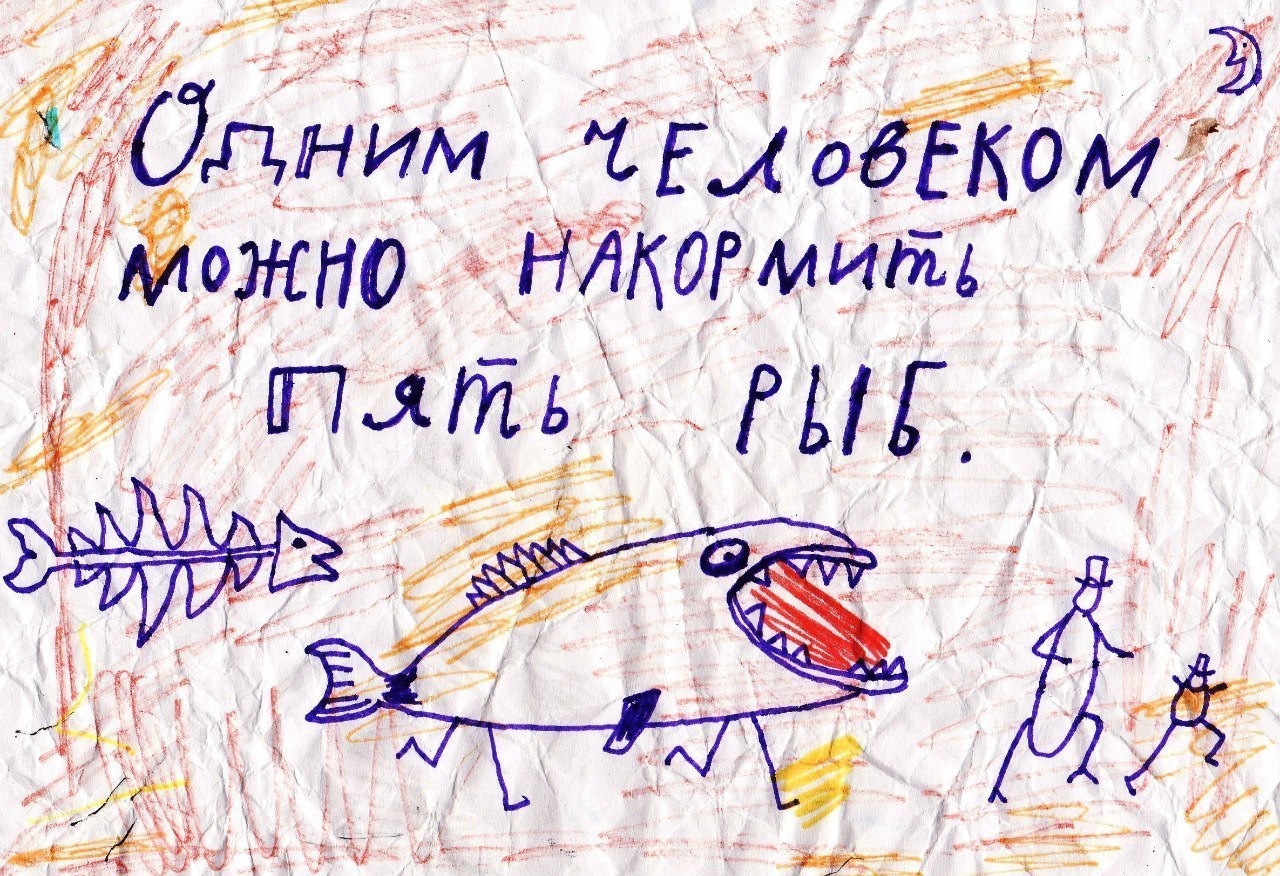 Одним человеком
можно накормить
Пять рыб.